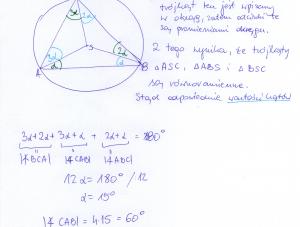 trójkąt ten jest wpisany
w okrąg, zatem odcinki te
są promieniami okręgu.
Z tego wynika, że trójkąty
△ASC, △ABS i △BSC
są równoramienne.
Stąd odpowiednie wartości kątów
α
2α
S
3α
2α
α
α
A
B
3α+2α + 3α+α + 2α+α = 180°
|∢BCA| |∢CAB| |∢ABC|
12α = 180° /12
α = 15°
|∢CAB| = 4·15 = 60°